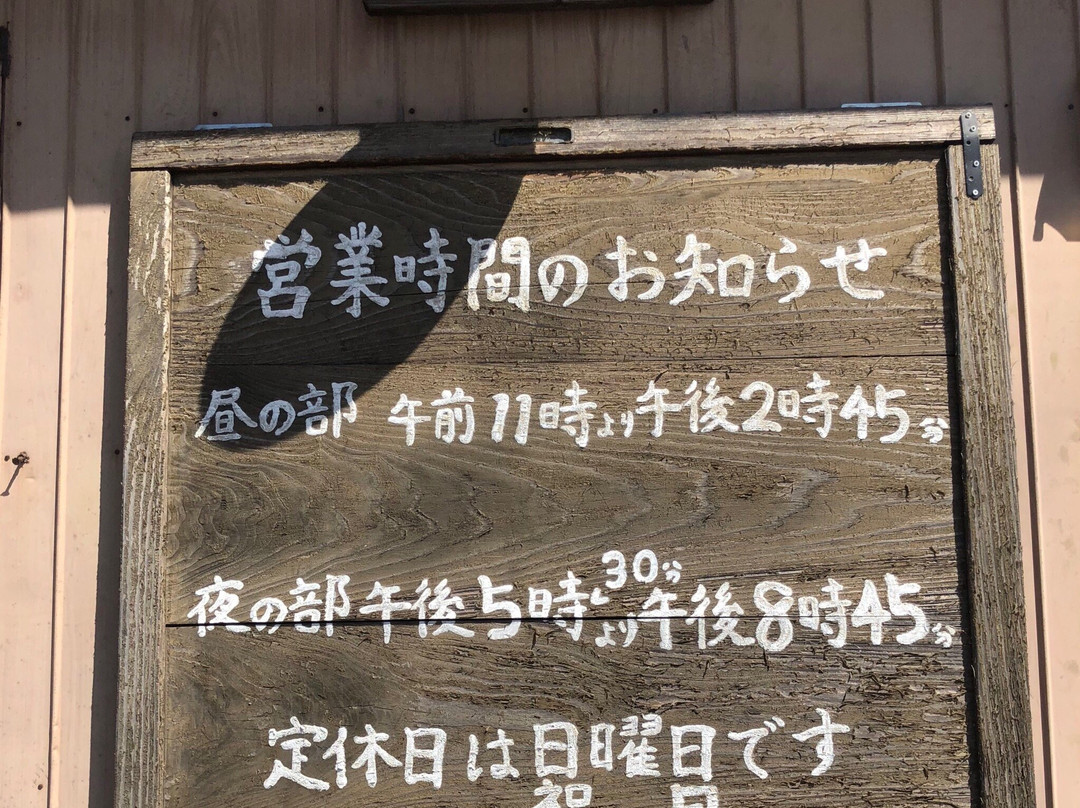 営業時間のお知らせ
昼の部 午前11時より午後2時45分
夜の部 午後5時30分より午後8時45分
定休日は日曜日です
祝日